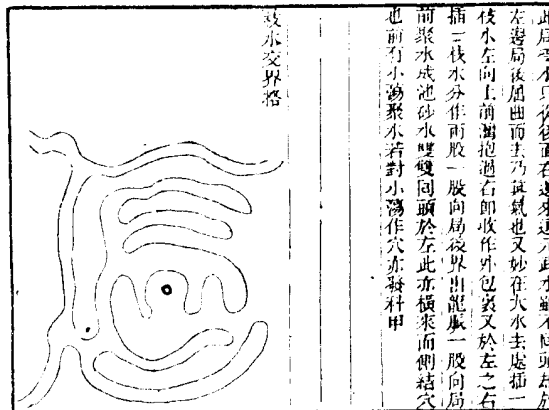 此局幹水只從後面右邊來過穴此水雖不回頭却於
左邊局後屈曲而去乃眞氣也又妙在大水去處插一
枝水左向上前灣抱過右卽收作外包裹又於左之右
插一枝水分作兩股一股向局後界出龍脈一股向局
前聚水成池砂水雙雙囘頭於左此亦橫來而側結穴
也前有小蕩聚水若對小蕩作穴亦發科甲
枝水交界格